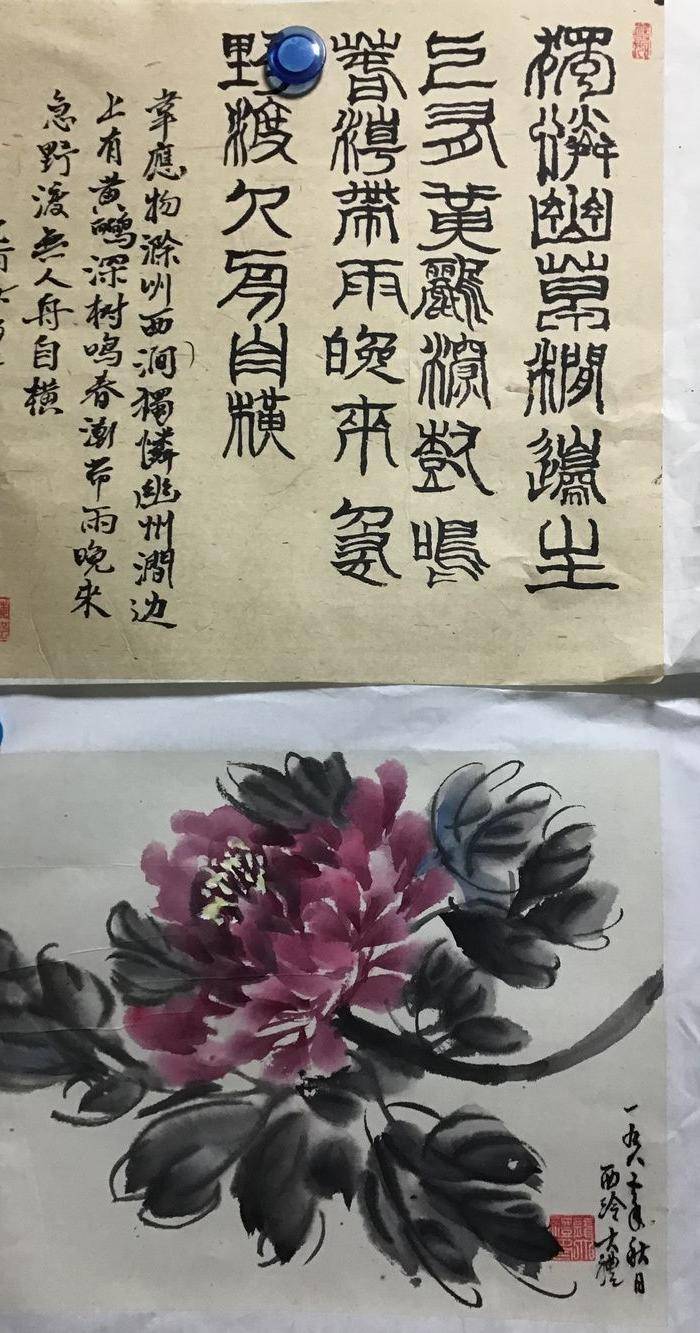 獨憐幽草澗邊生
上有黃鸝深樹鳴
春潮帶雨晚來急
野渡舟自橫
韋應物滁州西澗獨憐幽州澗边
上有黄鸝深树鳴春潮带雨晚来
急野渡无人舟自横
一九八年秋月
西泠